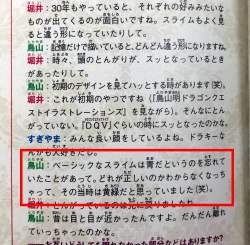 堀井：30年もやっていると、それぞれの好みみたいな
ものが出てくるのが面白いですね。スライムもよく見
ると違う形になっていたりして。
鳥山：記憶だけで描いていると、どんどん違う形になりますね。
堀井：時々、頭のとんがりが、スッとなっているとき
があったりして。
鳥山：初期のデザインを見てハッとする時があります(笑)
堀井：これが初期のやつですね（『鳥山明ドラゴンクエ
ストイラストレーションズ』を見ながら)。そんなにとん
がっていない。『DQⅤ』ぐらいの時にスッとなったのかな。
すぎやま：みんな良い顔をしているよね。ドラキーな
んかも大好きだし。
鳥山：ベーシックなスライムは青だというのを忘れて
いたことがあって。どれが正しいのかわからなくなっち
ゃって、その当時は黄緑だと思っていました(笑)
鳥山：昔は目と目が近かったんですよ。だんだん離れ
ていっちゃったのかな。